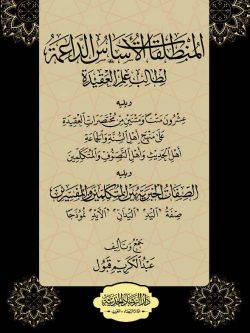 المنطلقات الأساس الداعمة
لطالب علم العقيدة
ويليه
عشرون متنا وستين من مختصرات العقيدة
على منهج أهل السنة والجماعة
أهل الحديث وأهل التصوف والمتكلمين
ويليه
الصفات الخبرية بين المتكلمين والمفسرين
صفة "اليد" "اليدان" "الأيد" نموذجا
جمع وتأليف
عبد الكريم قبول